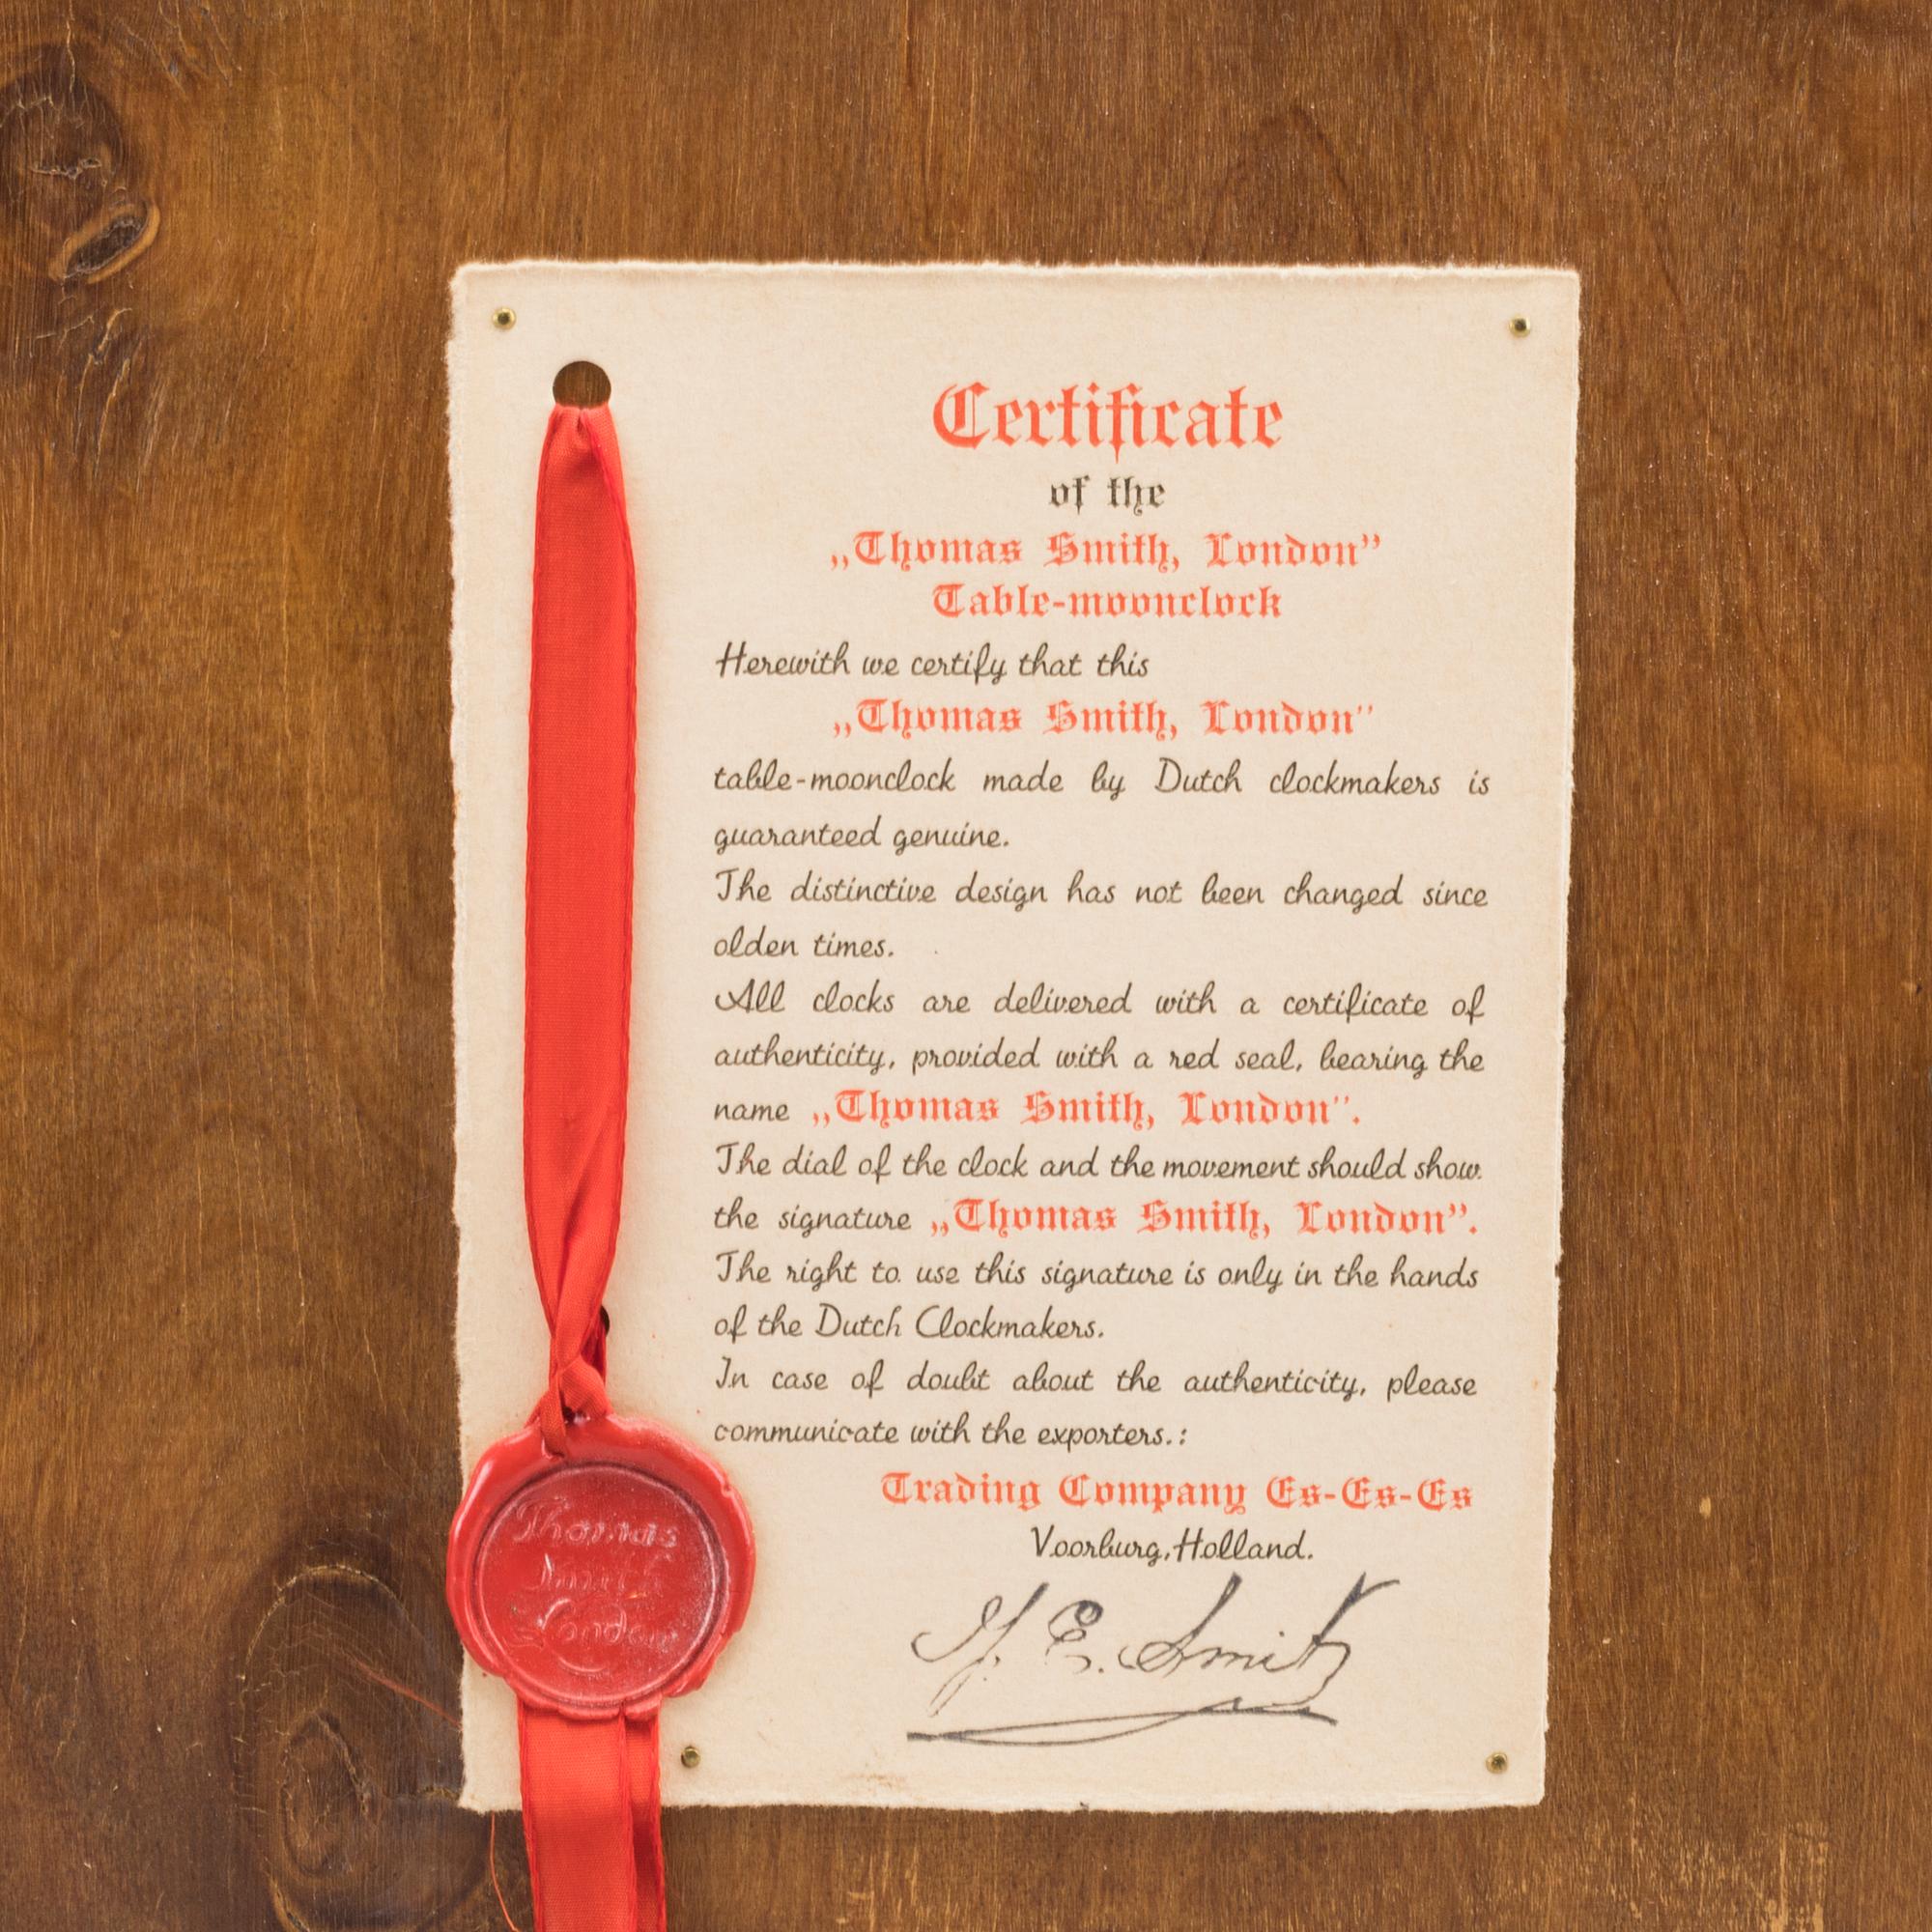 Certificate
of the
„Thomas Smith, London”
Table-moonclock
Herewith we certify that this
„Thomas Smith, London”
table-moonclock made by Dutch clockmakers is
guaranteed genuine.
The distinctive design has not been changed since
olden times.
All clocks are delivered with a certificate of
authenticity, provided with a red seal, bearing the
name „Thomas Smith, London”.
The dial of the clock and the movement should show
the signature „Thomas Smith, London”.
The right to use this signature is only in the hands
of the Dutch Clockmakers.
In case of doubt about the authenticity, please
communicate with the exporters.:
Trading Company Es-Es-Es
Voorburg, Holland.
E. Smit
Thomas
Smith
London